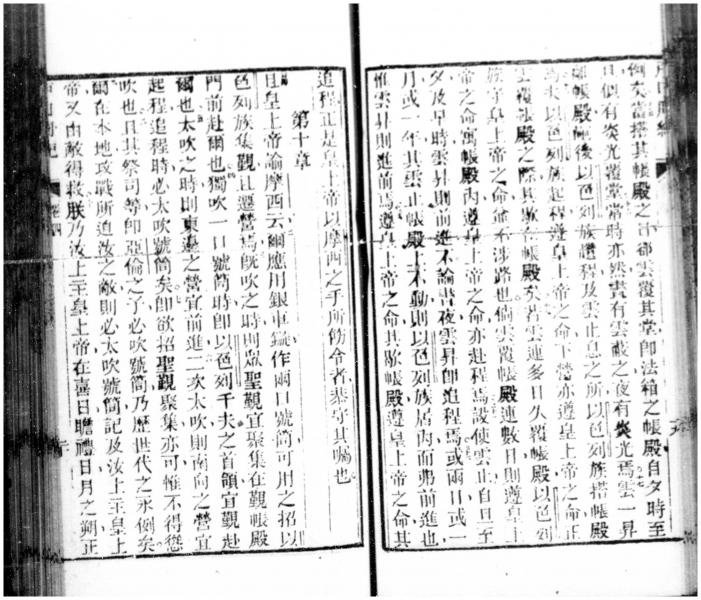 例矣當搭其帳殿之日卻雲覆其堂即法箱之帳殿自夕時至
且似有炎光覆堂常時亦然晝有雲蔽之夜有炎光焉雲一昇
離帳殿輒後以色列族趲程及雲止息之所以色列族搭帳殿
焉夫以色列族起程遵皇上帝之命下營亦遵皇上帝之命正
雲覆帳殿之際其歇在帳殿矣若雲連多日久覆帳殿以色列
族守皇上帝之命並不涉路也倘雲覆帳殿連數日則遵皇上
帝之命寓帳殿內遵皇上帝之命亦赴程焉設使雲止自日至
夕及早時雲昇則前進不論晝夜雲昇即追程焉或兩日或一
月或一年其雲止帳殿上不動則以色列族居內而弗前進也
惟雲昇則進前焉遵皇上帝之命其歇帳殿遵皇上帝之命其
追程正是皇上帝以摩西之手所飭令者恭守其囑也
第十章
且皇上帝諭摩西云爾應用銀車鏇作兩口號筒可用之招以
色列族集觀且遷營焉既吹之時則眾聖觀宜聚集在觀帳殿
門前赴爾也獨吹一口號筒時即以色列千夫之首領宜觀赴
爾也太吹之時則東邊之營宜前進二次太吹則南向之營宜
起程追程時必太吹號筒矣即欲招聖觀聚集亦可惟不得懲
吹也且其祭司等即亞倫之子必吹號筒乃歷世代之永例矣
爾在本地攻戰所迫汝之敵則必太吹號筒記及汝上主皇上
帝又由敵得救朕乃汝上主皇上帝在喜日瞻禮日月之朔正